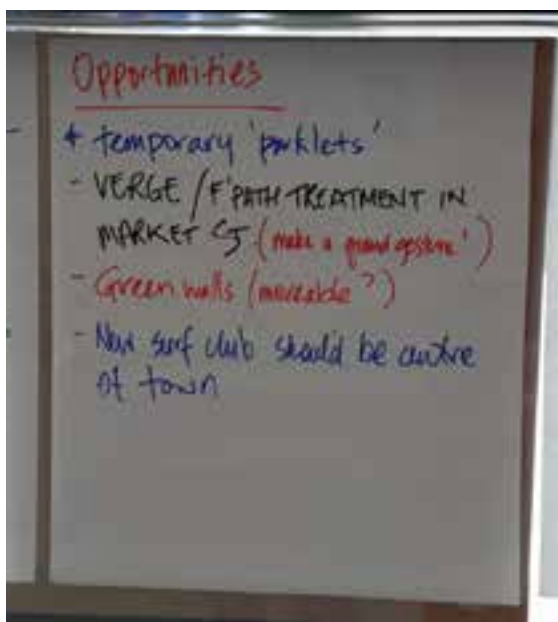 Opportunities
+ temporary 'parklets'
- VERGE / F'PATH TREATMENT IN
MARKET ST (make a grand gesture')
- Green walls (moveable?)
- New surf club should be centre
of town